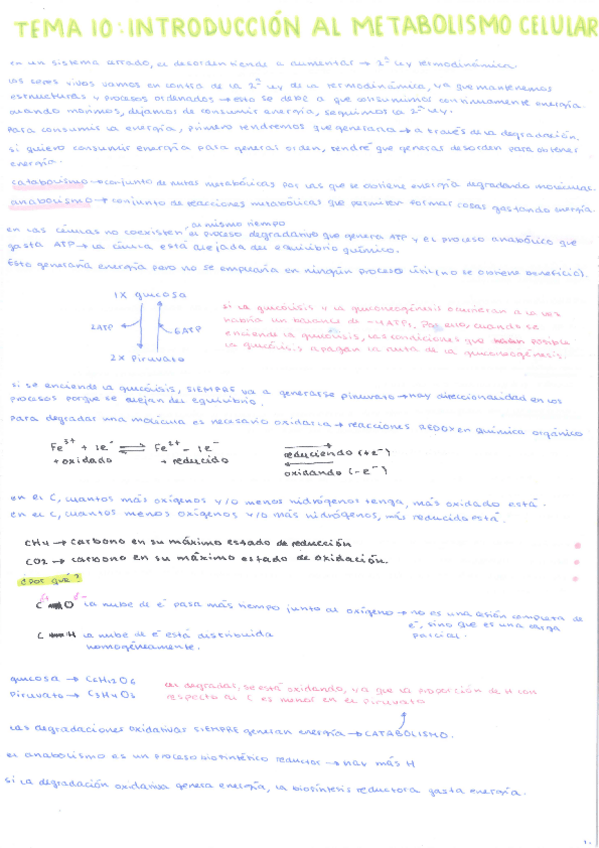 TEMA 10: INTRODUCCIÓN AL METABOLISMO CELULAR
en un sistema cerrado, el desorden tiende a aumentar → 2ª ley termodinámica
los seres vivos vamos en contra de la 2ª ley de la termodinámica, ya que mantenemos
estructuras y procesos ordenados → esto se debe a que consumimos continuamente energía.
cuando morimos, dejamos de consumir energía, seguimos la 2ª ley.
Para consumir la energía, primero tendremos que generarla → a través de la degradación.
si quiero consumir energía para generar orden, tendré que generar desorden para obtener
energía.
catabolismo → conjunto de rutas metabólicas por las que se obtiene energía degradando moléculas.
anabolismo → conjunto de reacciones metabólicas que permiten formar cosas gastando energía.
en las células no coexisten al mismo tiempo el proceso degradativo que genera ATP y el proceso anabólico que
gasta ATP → la célula está alejada del equilibrio químico.
Esto generaría energía pero no se emplearía en ningún proceso útil (no se obtiene beneficio).
1x glucosa
2ATP 6ATP
2x Piruvato
si la glucólisis y la gluconeogénesis ocurrieran a la vez
habría un balance de -4ATPs. Por ello, cuando se
enciende la glucólisis, las condiciones que hacen posible
la glucólisis apagan la ruta de la gluconeogénesis.
si se enciende la glucólisis, SIEMPRE va a generarse piruvato → hay direccionalidad en los
procesos porque se alejan del equilibrio.
Para degradar una molécula es necesario oxidarla → reacciones REDOX en química orgánico
Fe³⁺ + 1e⁻ ⇌ Fe²⁺ - 1e⁻ reduciendo (+e⁻)
+ oxidado + reducido oxidando (-e⁻)
en el C, cuantos más oxígenos y/o menos hidrógenos tenga, más oxidado está.
en el C, cuantos menos oxígenos y/o más hidrógenos, más reducido está.
CH4 → carbono en su máximo estado de reducción
CO2 → carbono en su máximo estado de oxidación.
¿Por qué?
δ+ δ-
C O la nube de e⁻ pasa más tiempo junto al oxígeno → no es una cesión completa de
e⁻, sino que es una carga
parcial.
C H la nube de e⁻ está distribuida
homogéneamente.
glucosa → C6H12O6
Piruvato → C3H4O3
al degradar, se está oxidando, ya que la proporción de H con
respecto al C es menor en el piruvato
las degradaciones oxidativas SIEMPRE generan energía → CATABOLISMO.
el anabolismo es un proceso biosintético reductor → hay más H
si la degradación oxidativa genera energía, la biosíntesis reductora gasta energía.